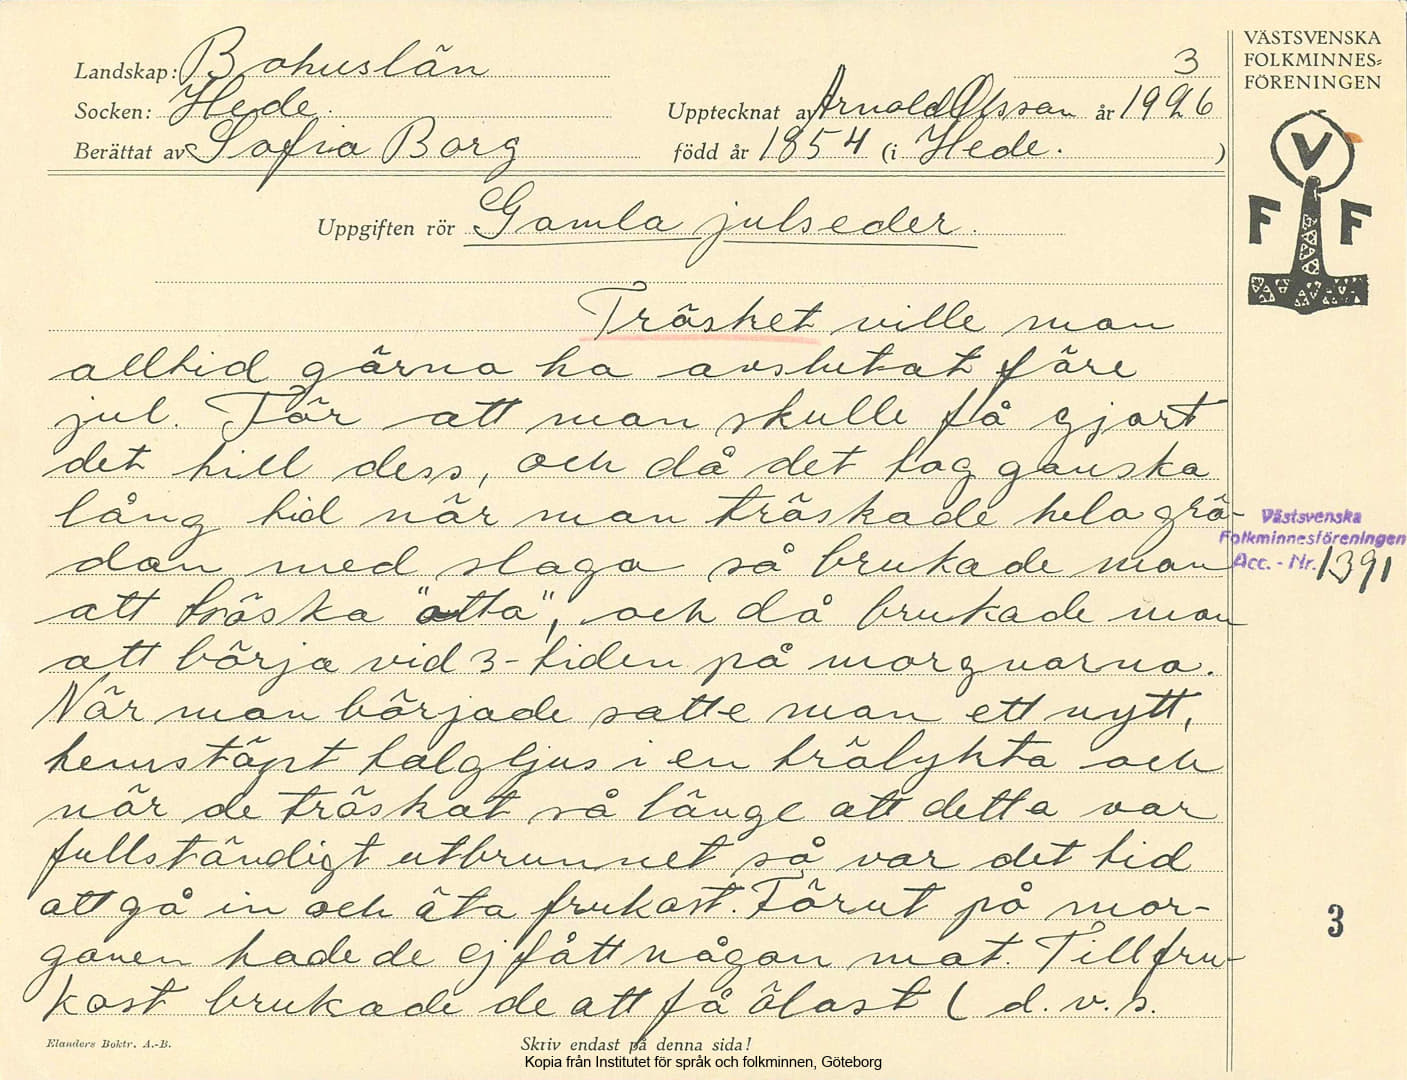 Landskap: Bohuslän
3
Socken: Hede.
Upptecknat av Arnold Olsson år 1926
Berättat av Sofia Borg
född år 1854 (i Hede. )
VÄSTSVENSKA
FOLKMINNES=
FÖRENINGEN
V
F F
Uppgiften rör Gamla julseder.
Träsket ville man
alltid gärna ha avslutat före
jul. För att man skulle få gjort
det till dess, och då det tog ganska
lång tid när man träskade hela grö-
dan med slaga så brukade man
att träska "otta", och då brukade man
att börja vid 3-tiden på morgnarna.
När man började satte man ett nytt,
hemstöpt talgljus i en trälykta och
när de träskat så länge att detta var
fullständigt utbrunnet så var det tid
att gå in och äta frukost. Förut på mor-
gonen hade de ej fått någon mat. Till fru-
kost brukade de att få ölost ( d.v.s.
Västsvenska
Folkminnesföreningen
Acc. - Nr. 1391
3
Elanders Boktr. A.-B.
Skriv endast på denna sida!
Kopia från Institutet för språk och folkminnen, Göteborg